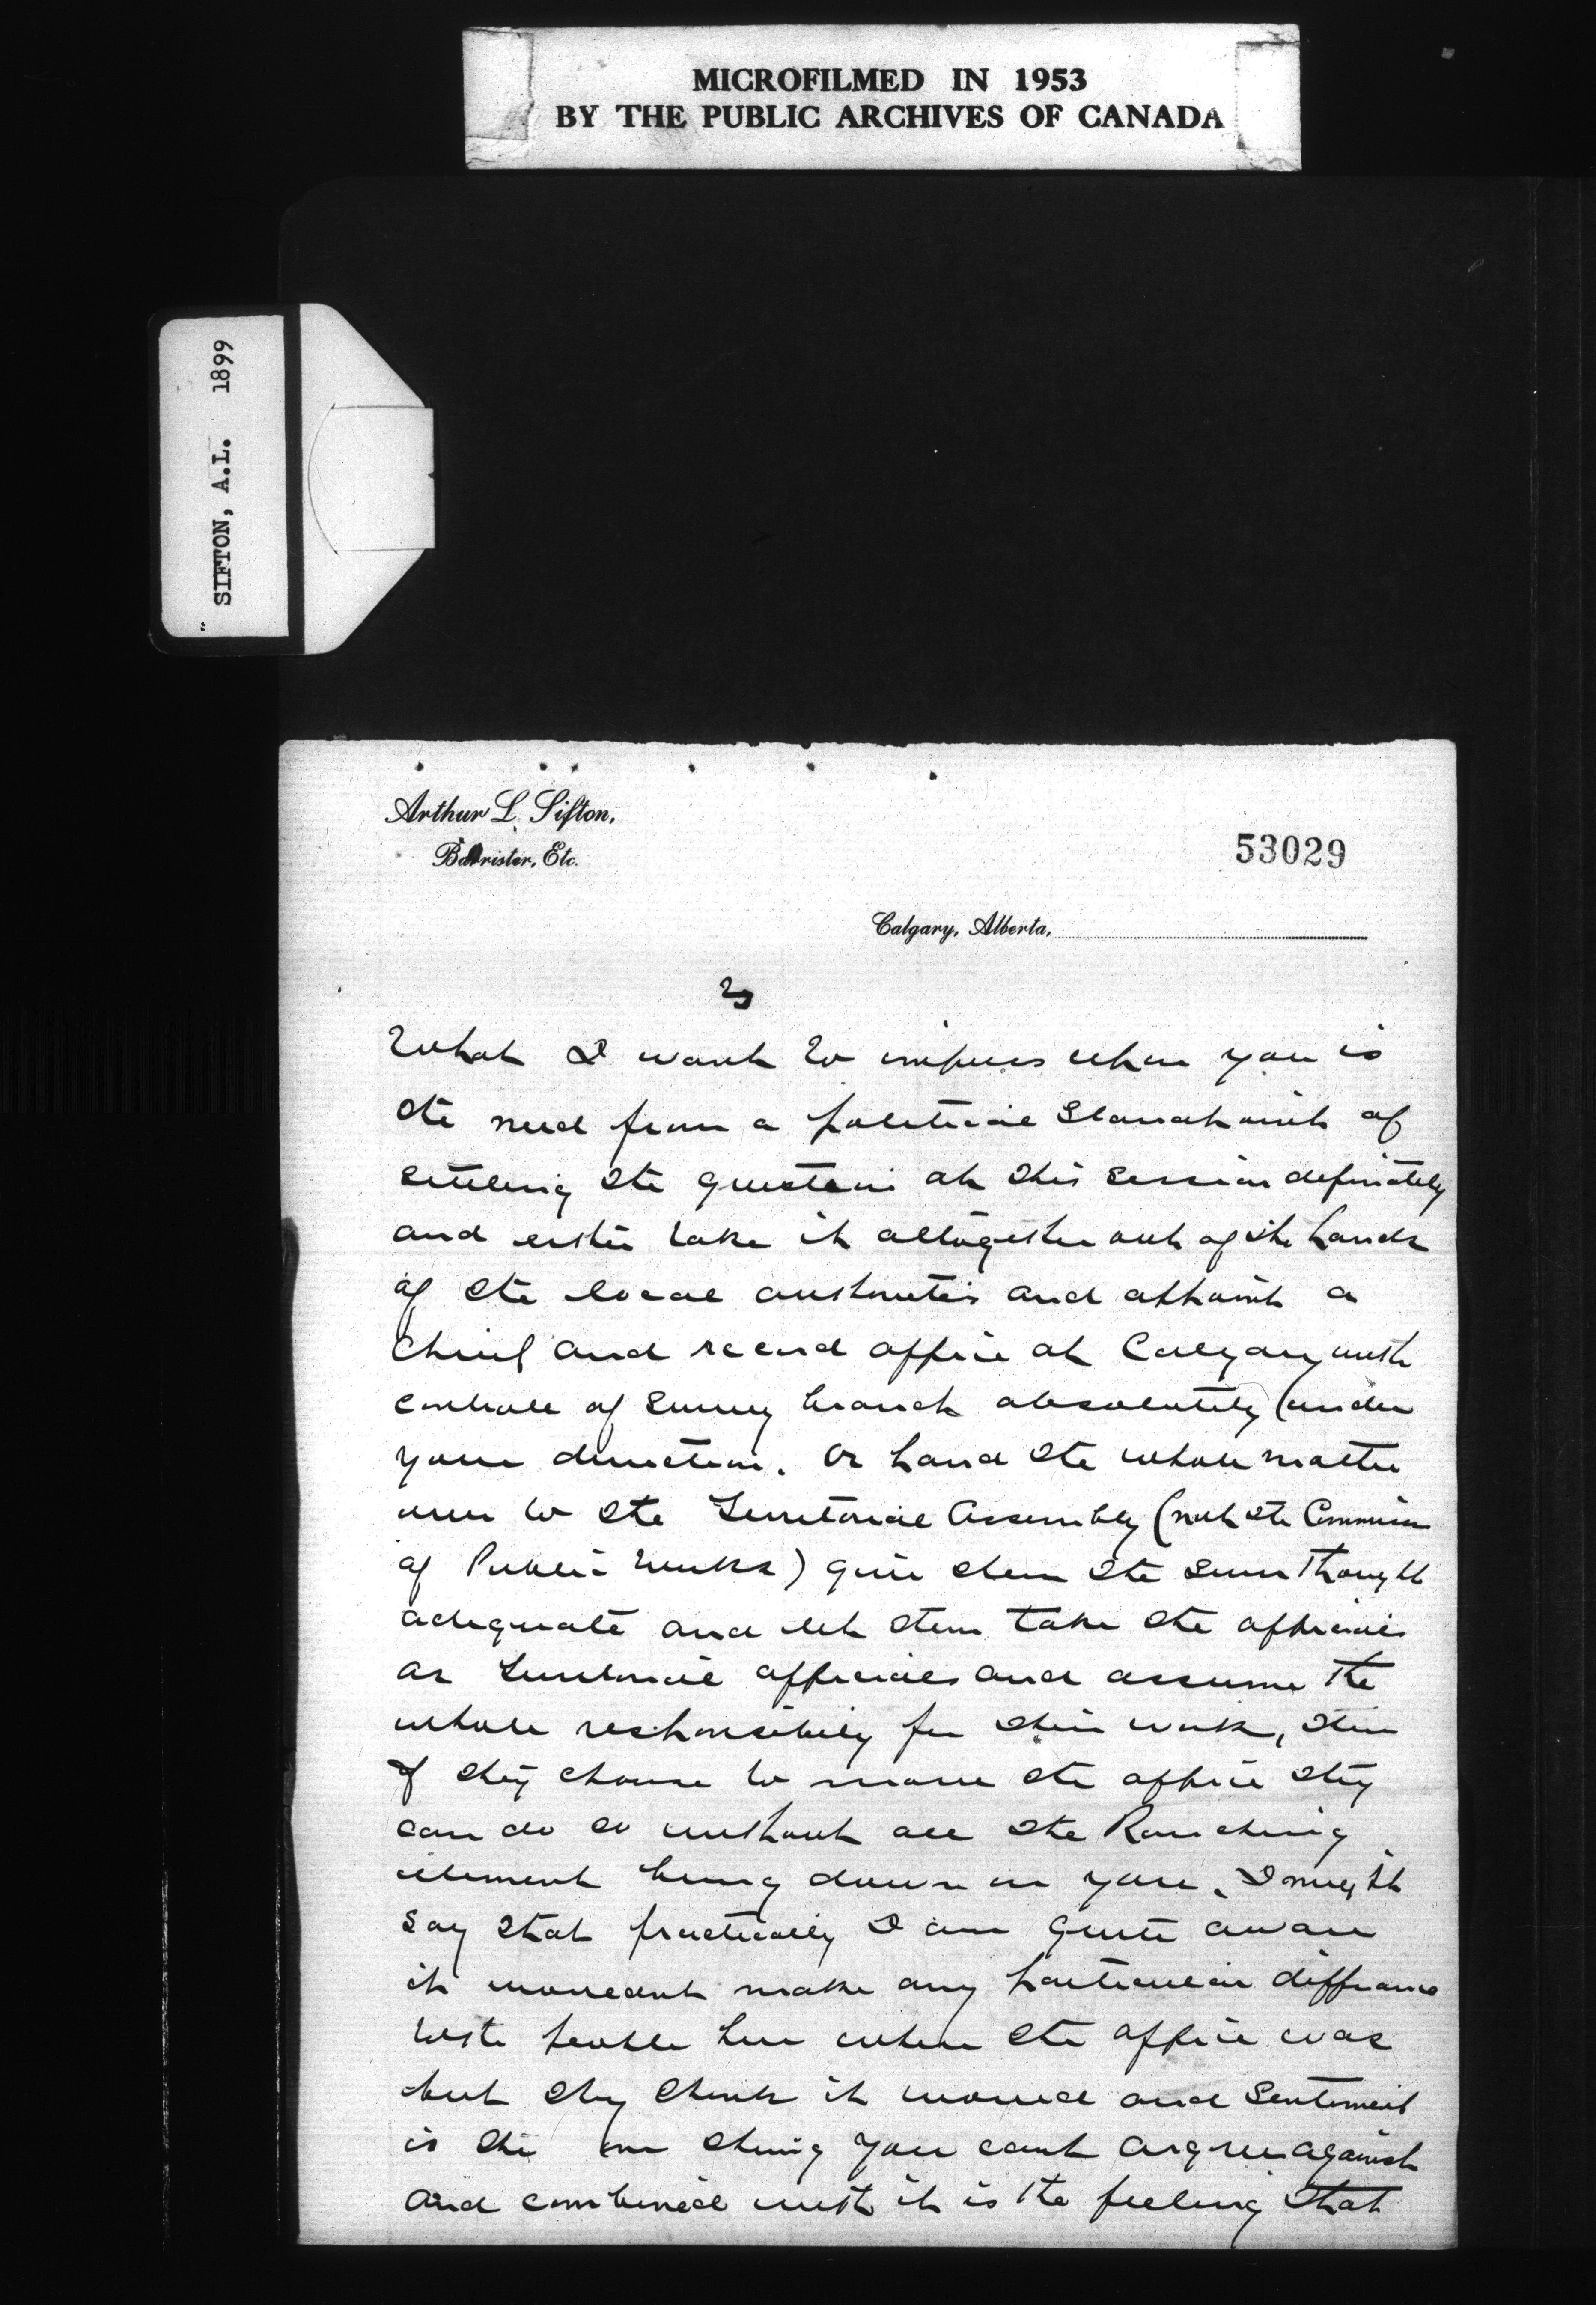 MICROFILMED IN 1953
BY THE PUBLIC ARCHIVES OF CANADA
SIFTON, A.L. 1899
Arthur L. Sifton,
Barrister, Etc.
53029
Calgary, Alberta,
3
What I want to impress upon you is
the need from a political standpoint of
settling the question at this session definitely
and either take it altogether out of the hands
of the local authorities and appoint a
chief and record office at Calgary with
control of survey branch absolutely (under
your direction. Or hand the whole matter
over to the Territorial Assembly (not the Commissioner
of Public Works) give them the sum thought
adequate and let them take the officials
as Territorial officials and assume the
whole responsibility for their work, then
if they choose to move the office they
can do so without all the Ranching
element being down on you. I might
say that practically I am quite aware
it wouldnt make any particular difference
to the people here where the office was
but they think it would and Sentiment
is the one thing you cant argue against
and combined with it is the feeling that